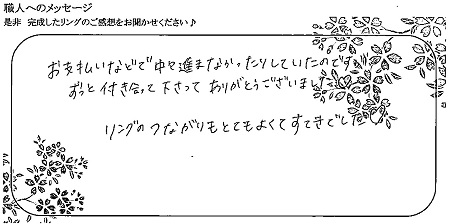 職人へのメッセージ
是非 完成したリングのご感想をお聞かせください♪
お支払いなどで中々進まなかったりしていたのです
ずっと付き合って下さって ありがとうございました
リングのつながりもとてもよくてすてきでした